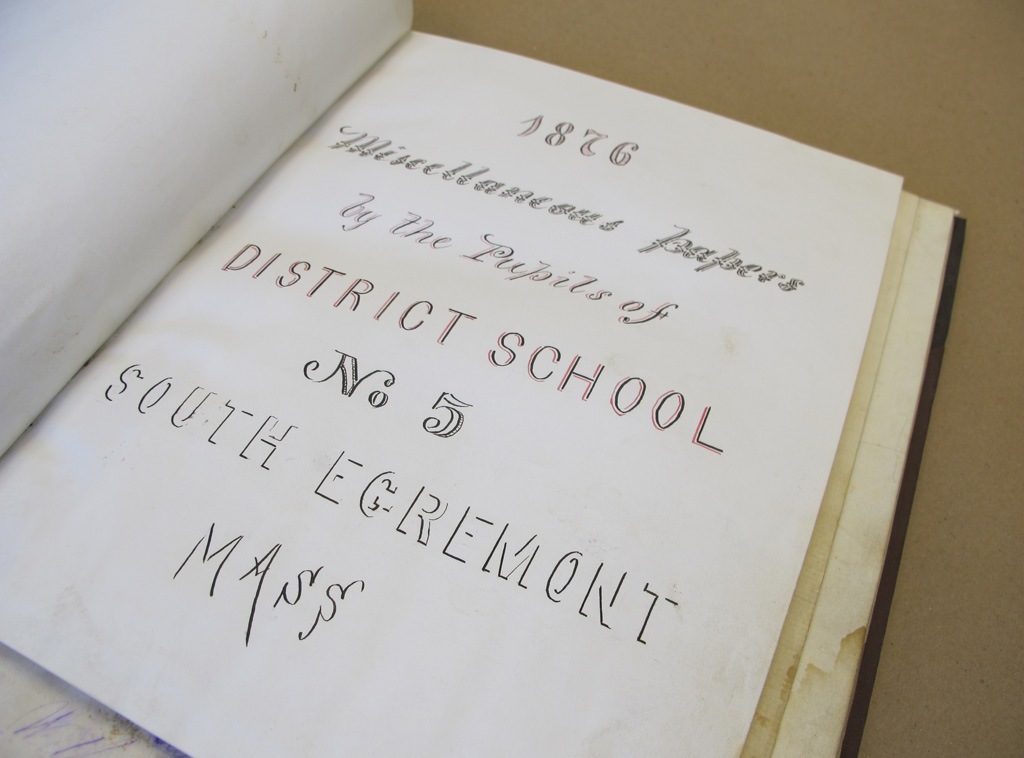 1876
Miscellaneous papers
by the Pupils of
DISTRICT SCHOOL
No 5
SOUTH EGREMONT
MASS